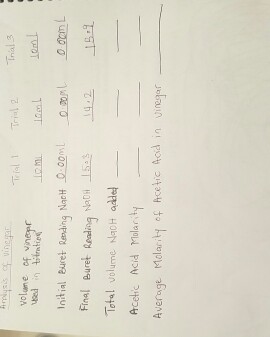 Analysis of vinegar
Trial 1 Trial 2 Trial 3
volume of vinegar 10ml 10ml 10ml
used in titration
Initial Buret Reading NaOH 0.00ml 0.00ml 0.00ml
Final Buret Reading NaOH 15.3 14.2 15.9
Total volume NaOH added
Acetic Acid Molarity
Average Molarity of Acetic Acid in vinegar